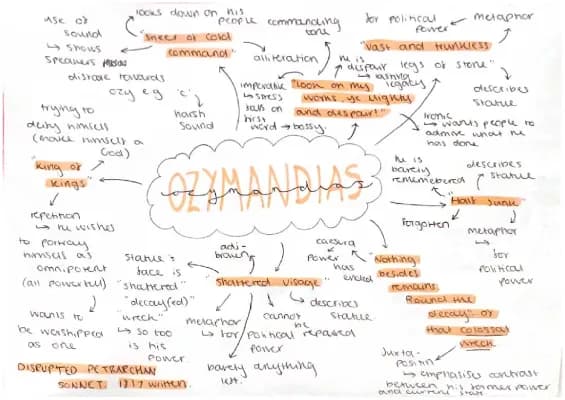 use of
sound
↳ shows
speakers
distaste towards
ozy e.g 'c'
harsh
sound
looks down on his
people
commanding
tone
"sneer of cold
command"
alliteration
for political
power
metaphor
"vast and trunkless
legs of stone"
describes
statue
imperative
↳ stress
falls on
first
word → bossy
"look on my
works, ye Mighty
and despair!"
he is
despair
↳ lasting
legacy
ironic
↳ wants people to
admire what he
has done
trying to
deify himself
(make himself a
God)
"King of
kings"
repetition
↳ he wishes
to portray
himself as
omnipotent
(all powerful)
wants to
be worshipped
as one
OZYMANDIAS
ozymandias
he is
barely
remembered
describes
statue
"Half sunk"
forgotten
metaphor
↳ for
political
power
anti-
broken
caesura
power
has
ended
"Nothing
besides
remains.
Round the
decay" of
that colossal
wreck
juxta-
position
↳ emphasises contrast
between his former power
and current state
"shattered visage"
statue's
face is
"shattered"
"decay(ed)"
"wreck"
↳ so too
is his
power
metaphor
↳ for political
power
cannot
be
repaired
describes
statue
barely anything
left.
DISRUPTED PETRARCHAN
SONNET. 1817 written.